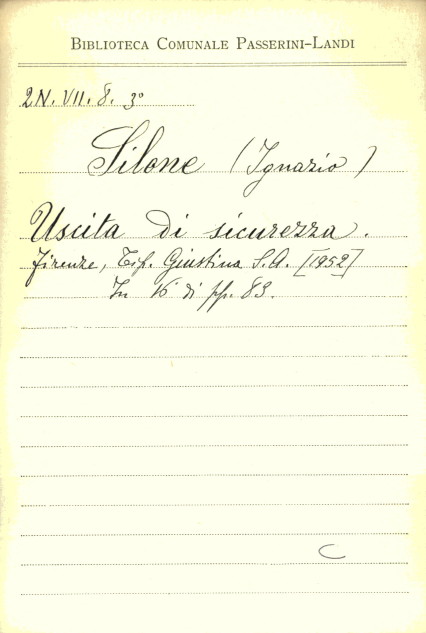 BIBLIOTECA COMUNALE PASSERINI-LANDI
2N. VII. 8. 3°
Silone (Ignazio)
Uscita di sicurezza.
Firenze, Tip. Giustina S.A. [1952]
In 16° di pp. 83.
C